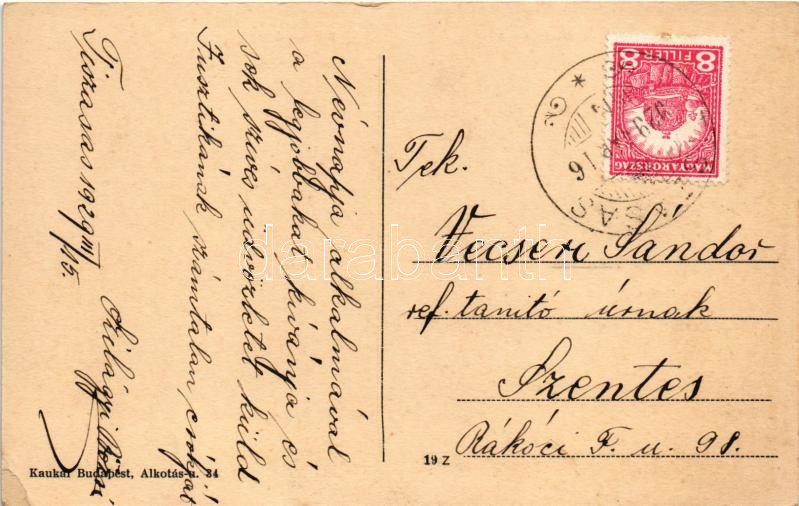 Névnapja alkalmával
a legjobbakat kívánja és
sok szíves üdvözletet küld
Fusztikának számtalan csókjat
Tiszasas 1929 III/15.
Szilágyi
Kaukál Budapest, Alkotás-u. 34
19 Z
MAGYARORSZÁG
8 FILLÉR 8
SAS
Tek.
Vecseri Sándor
ref. tanító úrnak
Szentes
Rákóci F. u. 98.
darabanth